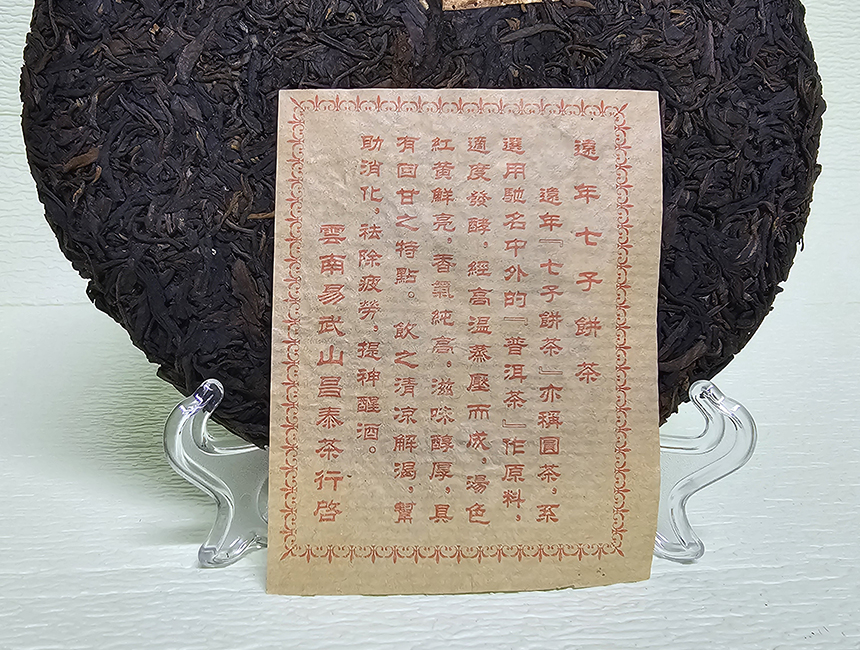 遠年七子餅茶
遠年『七子餅茶』亦稱圓茶，系
選用馳名中外的『普洱茶』作原料，
適度發酵，經高溫蒸壓而成，湯色
紅黄鮮亮，香氣純高，滋味醇厚，具
有回甘之特點。飲之清凉解渴，幫
助消化，祛除疲勞，提神醒酒。
雲南易武山昌泰茶行啓